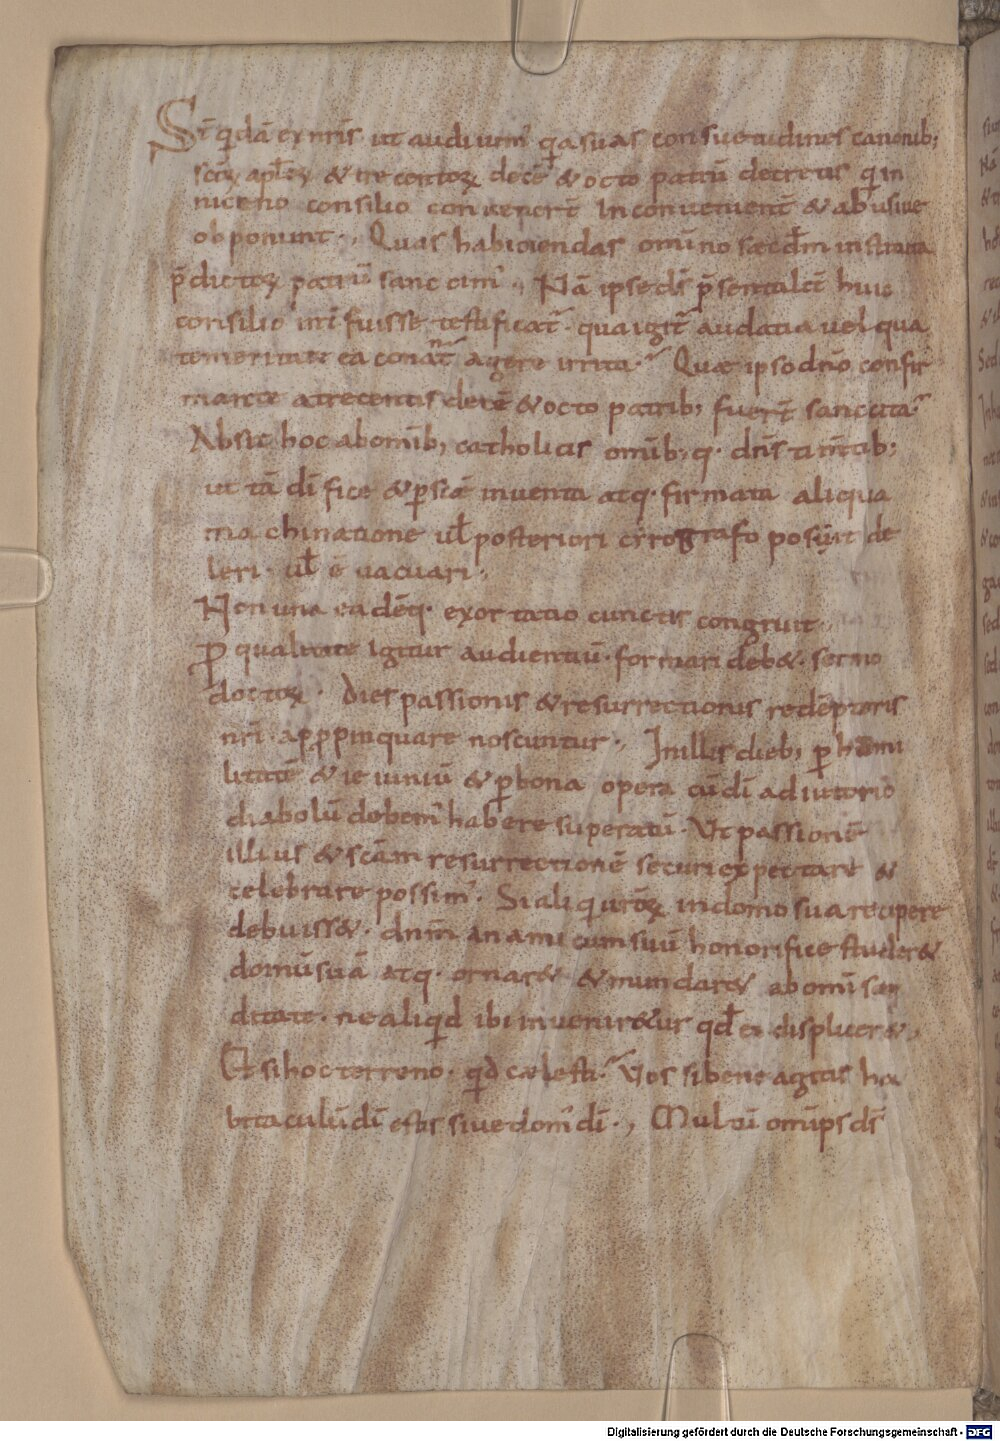 Si q̇dā ex nr̄is ut audiuim' q̇a suas consuetudines canonib;
sc̄oꝝ apl̄oꝝ & trecentoꝝ decē & octo patrū decretis q in
niceno consilio convenerт̄ Inconvenient̄ & abusive
obponunt·, Quas habiciendas omīno sæcdm̄ instituta
p̄dictoꝝ patrū sanccim'·, Nā ipse ds̄ p̄sentialit̄ huic
consilio int̄fuisse testificat̄· qua igit̄ audatia vel qua
temeritate ea conant̄ agere irrita· Quæ ipso dn̄o confir
mante a trecentis decē & octo patrib; fuert̄ sanccita
Absit hoc ab omīb; catholicis omīb;q· dn̄s tim̄tib;
ut tā dīfice & p̄ sc̄ā inventa atq· firmata aliqua
machinatione ul̄ posteriori cyrografo possint de
leri· ul̄ ēvacuari·,
Non una eadēq· exortatio cunctis congruit·,
ꝑ qualitate Igitur audientiū· formari deb&· sermo
doctoꝝ· Dies passionis & resurrectionis redēptoris
nr̄i· apꝓpinquare noscuntur·, In illis dieb; ꝑ humi
litatē & ieiuniū & ꝑ bona opera cū dī adiutorio
diabolū debem' habere superatū· Ut passionē
illius & sc̄am resurrectionē securi expectare &
celebrare possim'· Si aliq' uroꝝ in domo sua recipere
debuiss&· dnm̄ an amicum suū honorifice studer&
domū suā atq· ornar& & mundar& ab omī sor
ditate· ne aliq̇d ibi invenir&ur qd̄ ei displicer&·,
Et si hoc terreno· q̇d cælesti· Vos si bene agitis ha
bitaculū dī estis sive dom' dī·, Multi omīps ds̄
Digitalisierung gefördert durch die Deutsche Forschungsgemeinschaft - DFG